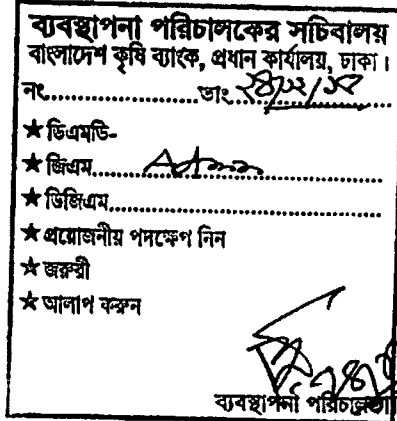 ব্যবস্থাপনা পরিচালকের সচিবালয়
বাংলাদেশ কৃষি ব্যাংক, প্রধান কার্যালয়, ঢাকা।
নং....................তাং
★ ডিএমডি-
★ জিএম Admn
★ ডিজিএম
★ প্রয়োজনীয় পদক্ষেপ নিন
★ জরুরী
★ আলাপ করুন
ব্যবস্থাপনা